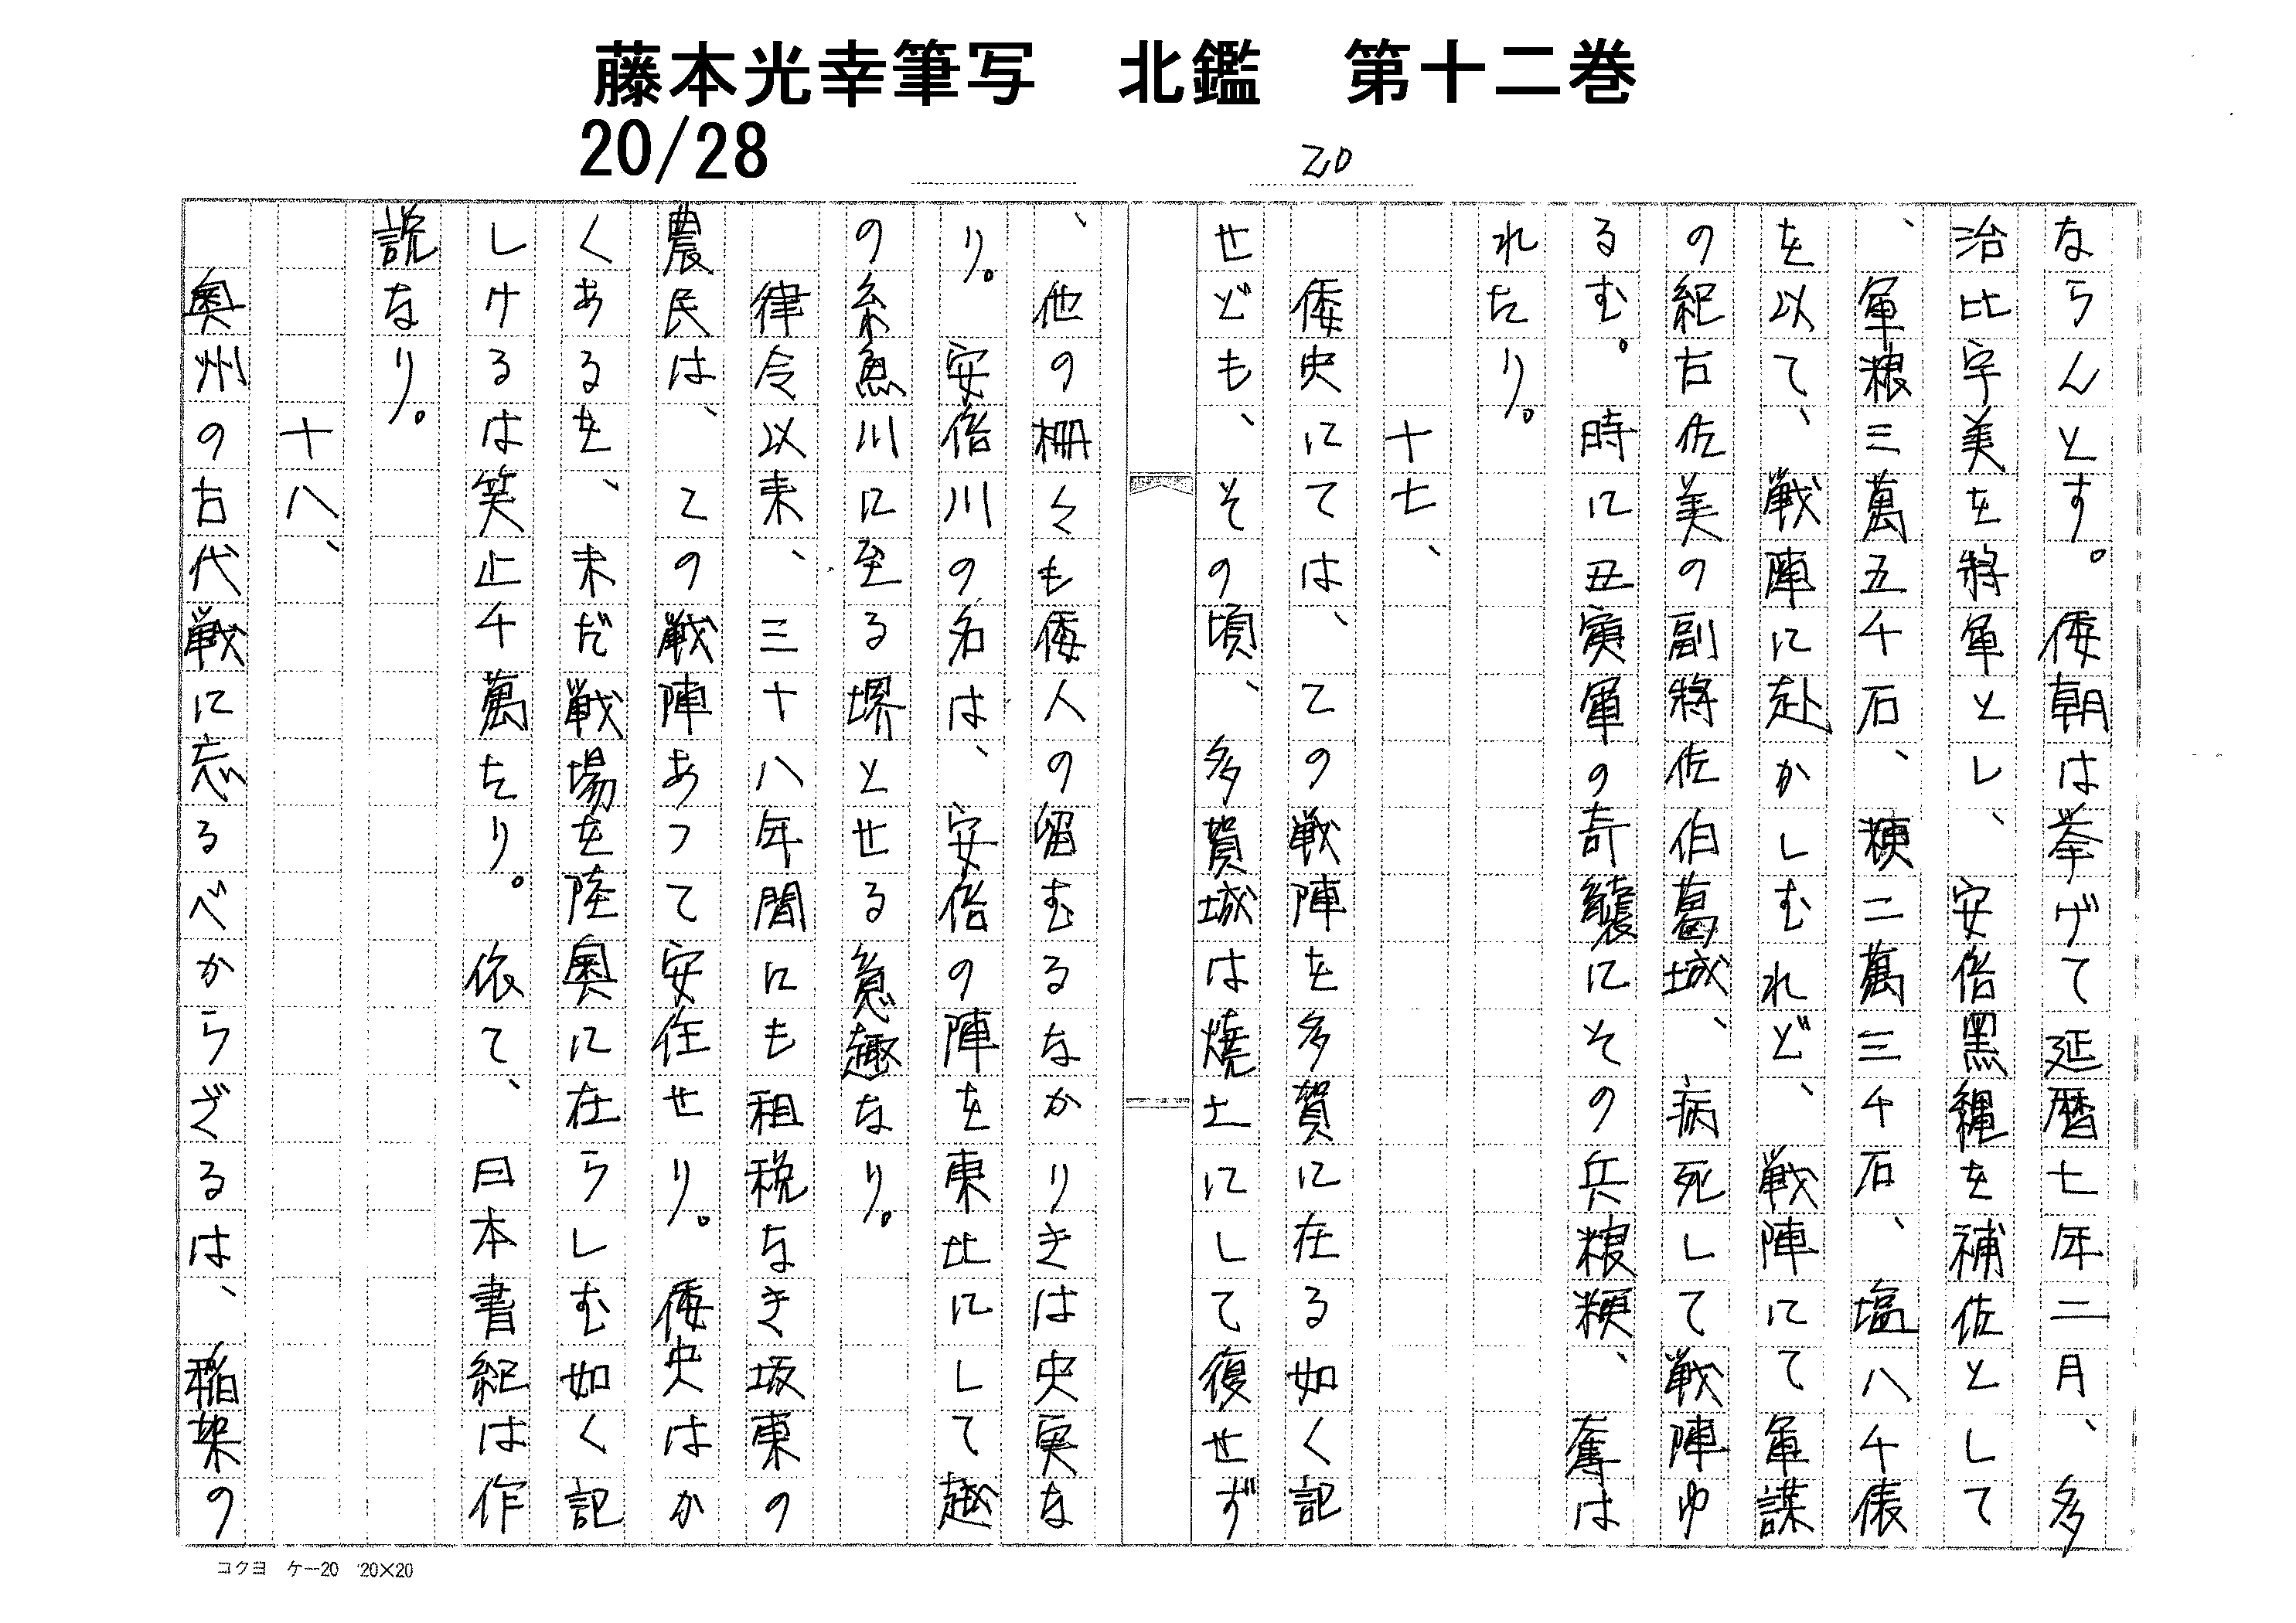 藤本光幸筆写　北鑑　第十二巻
20/28
20
ならんとす。倭朝は挙げて延暦七年二月、多
治比宇美を將軍とし、安倍黒縄を補佐として
、軍粮三萬五千石、糠二萬三千石、塩八千俵
を以て、戦陣に赴かしむれど、戦陣にて軍謀
の紀古佐美の副將佐伯葛城、病死して戦陣ゆ
るむ。時に丑寅軍の奇襲にその兵粮糠、奪は
れたり。
十七、
倭史にては、この戦陣を多賀に在る如く記
せども、その頃、多賀城は焼土にして復せず
、他の柵々も倭人の留むるなかりきは史実な
り。安倍川の名は、安倍の陣を東北にして越
の糸魚川に至る堺とせる意趣なり。
律令以来、三十八年間にも租税なき坂東の
農民は、この戦陣あって安住せり。倭史はか
くあるを、未だ戦場を陸奥に在らしむ如く記
しけるは笑止千萬たり。依て、日本書紀は作
説なり。
十八、
奥州の古代戦に忘るべからざるは、稲架の
コクヨ　ケー20　20×20